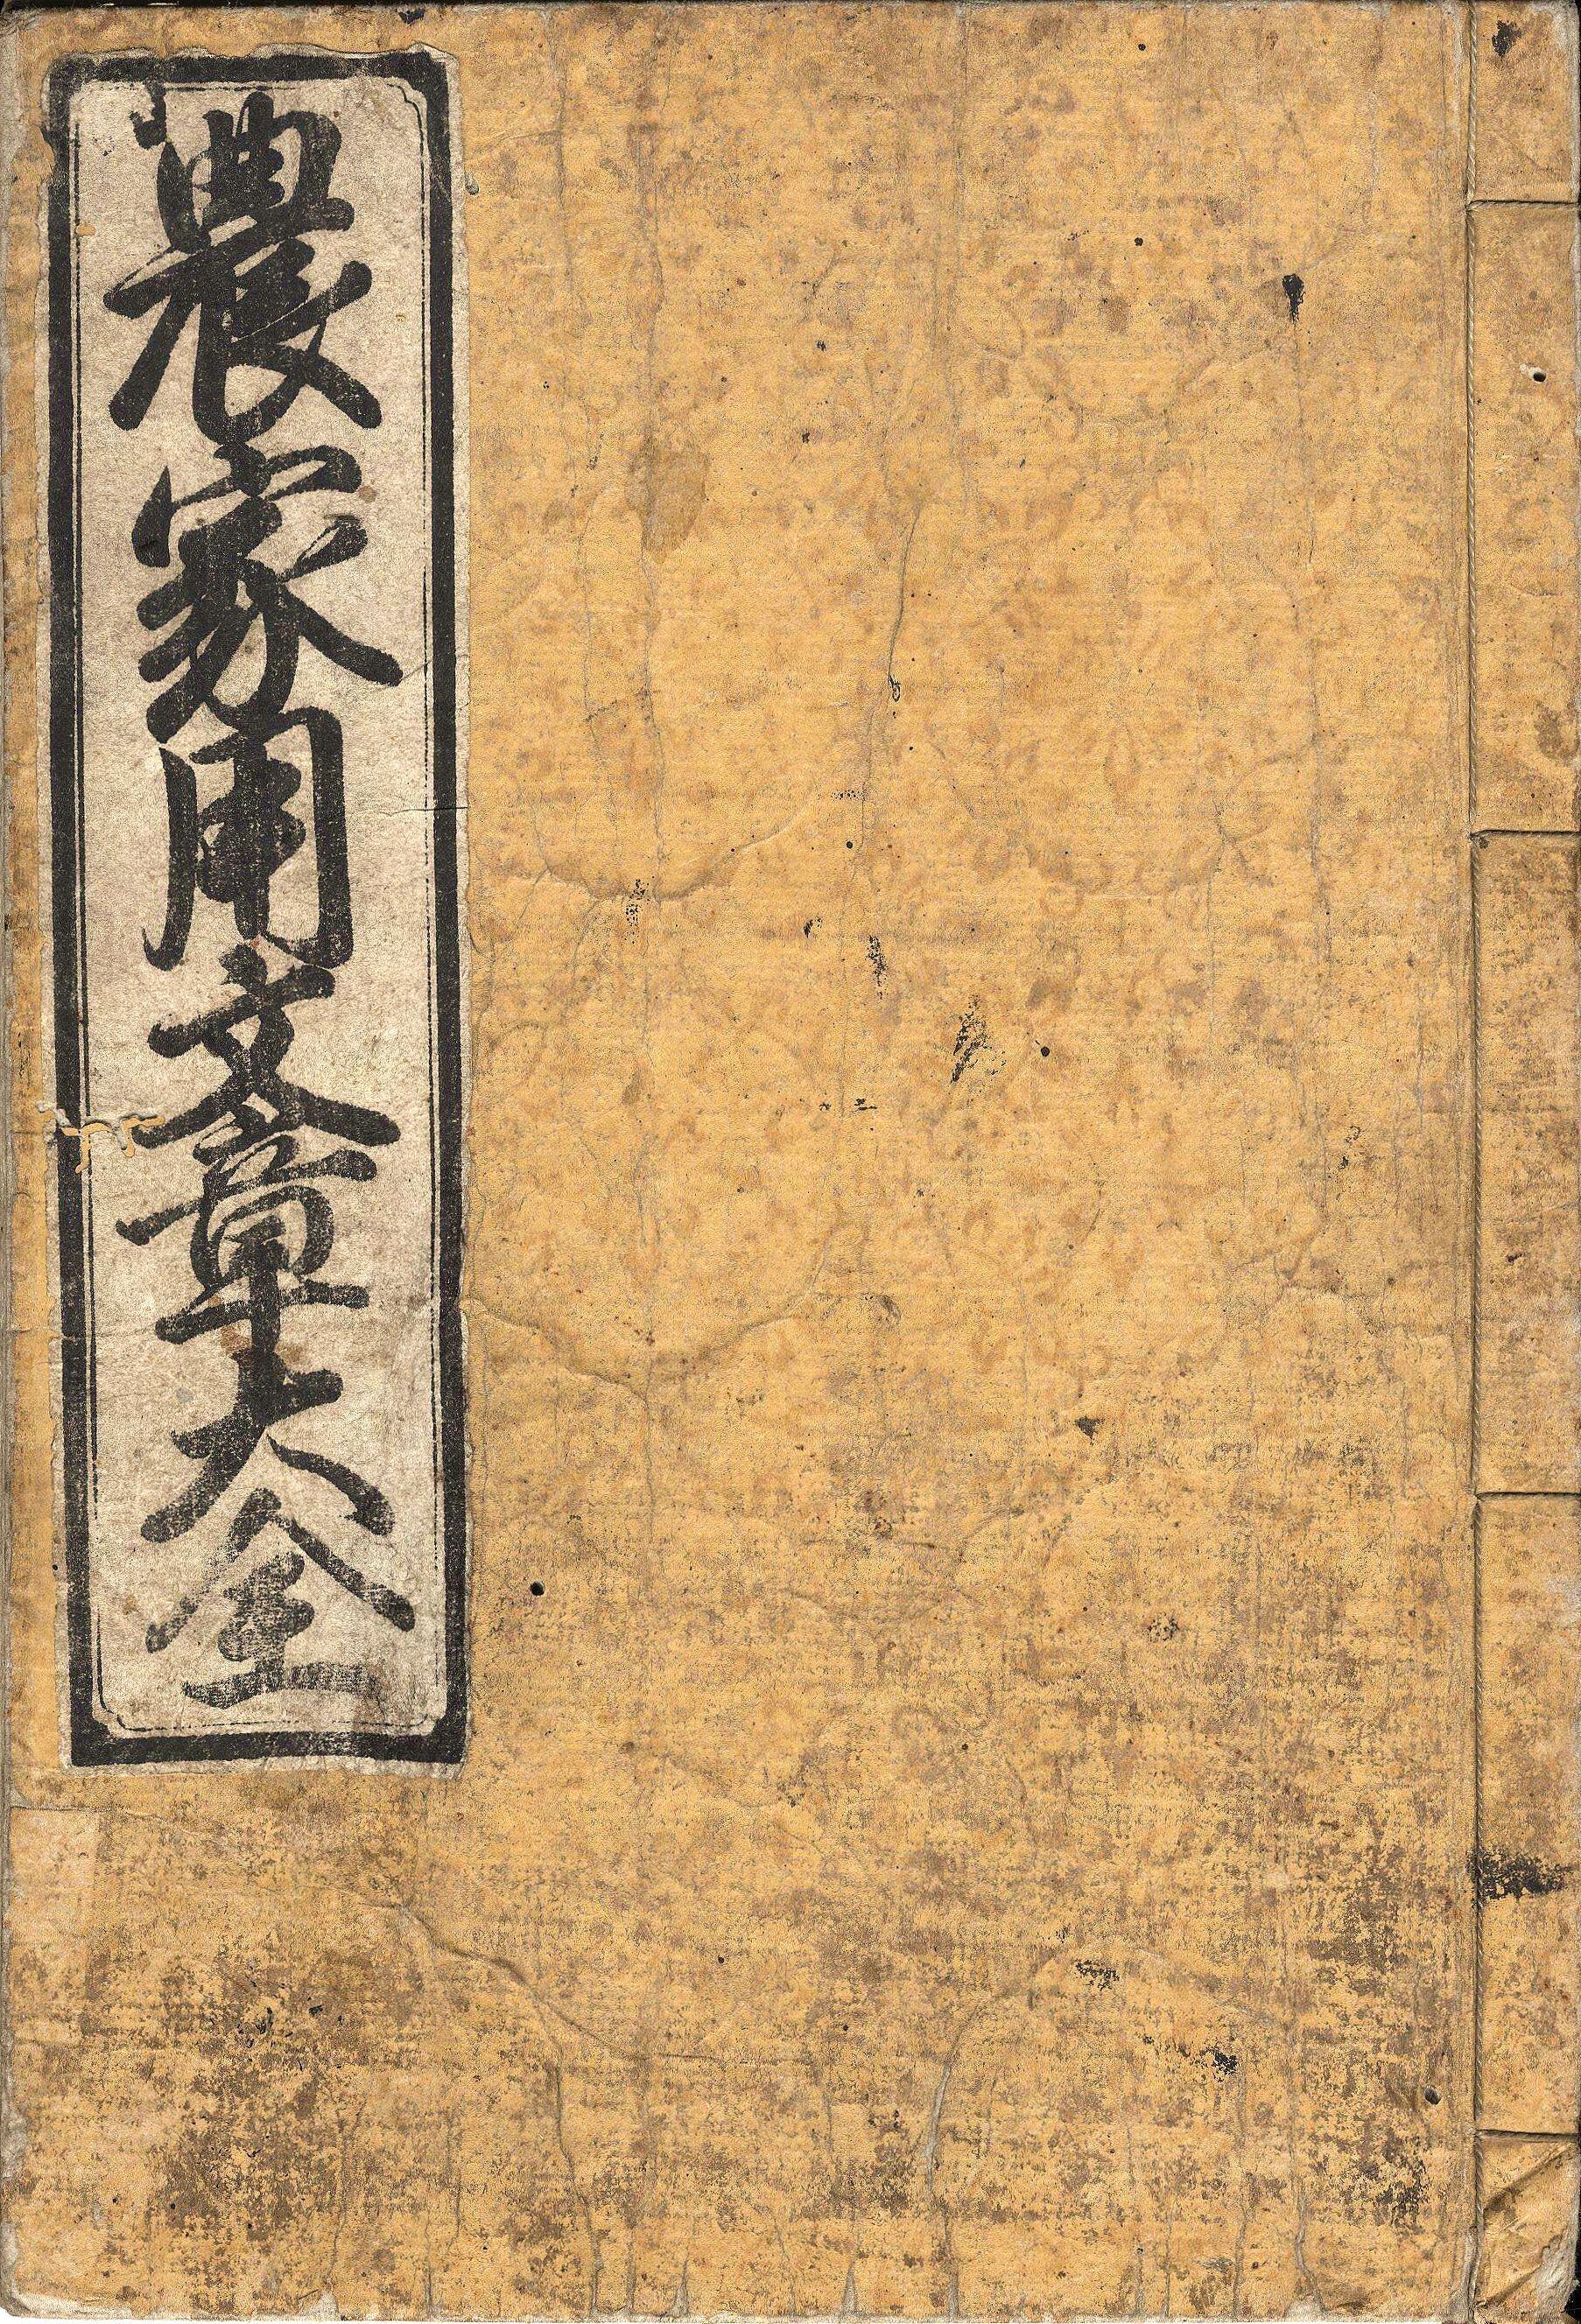 農家用文章大全